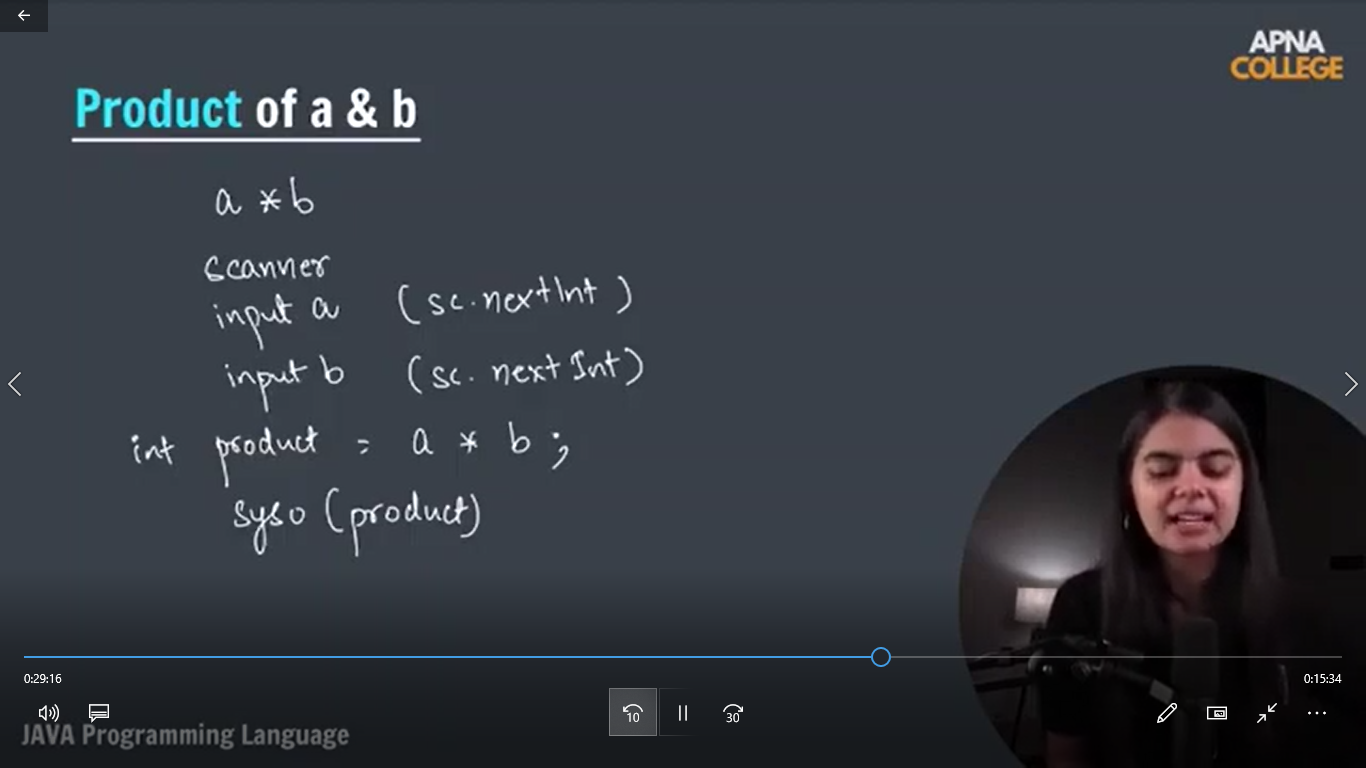 APNA
COLLEGE
Product of a & b
a * b
scanner
input a (sc.nextInt)
input b (sc.nextInt)
int product = a * b ;
syso (product)
0:29:16
0:15:34
10
30
JAVA Programming Language